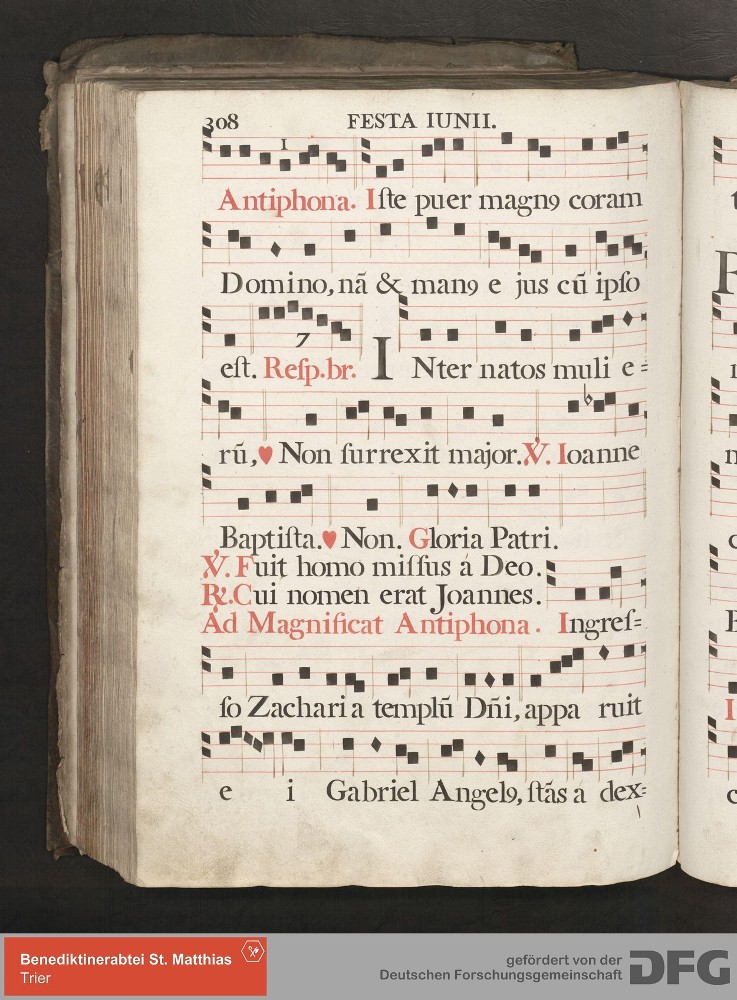 308 FESTA IUNII.
1
Antiphona. Iſte puer magnꝯ coram
Domino, nã & manꝯ e jus cũ ipſo
7
eſt. Reſp.br. INter natos muli e=
rũ,♥ Non ſurrexit major.℣. Ioanne
Baptiſta.♥ Non. Gloria Patri.
℣. Fuit homo miſſus á Deo.
℟. Cui nomen erat Joannes.
Ad Magnificat Antiphona. Ingreſ=
ſo Zachari a templũ Dñi, appa ruit
e i Gabriel Angelꝯ, ſtãs a dex=
Benediktinerabtei St. Matthias
Trier
gefördert von der
Deutschen Forschungsgemeinschaft
DFG